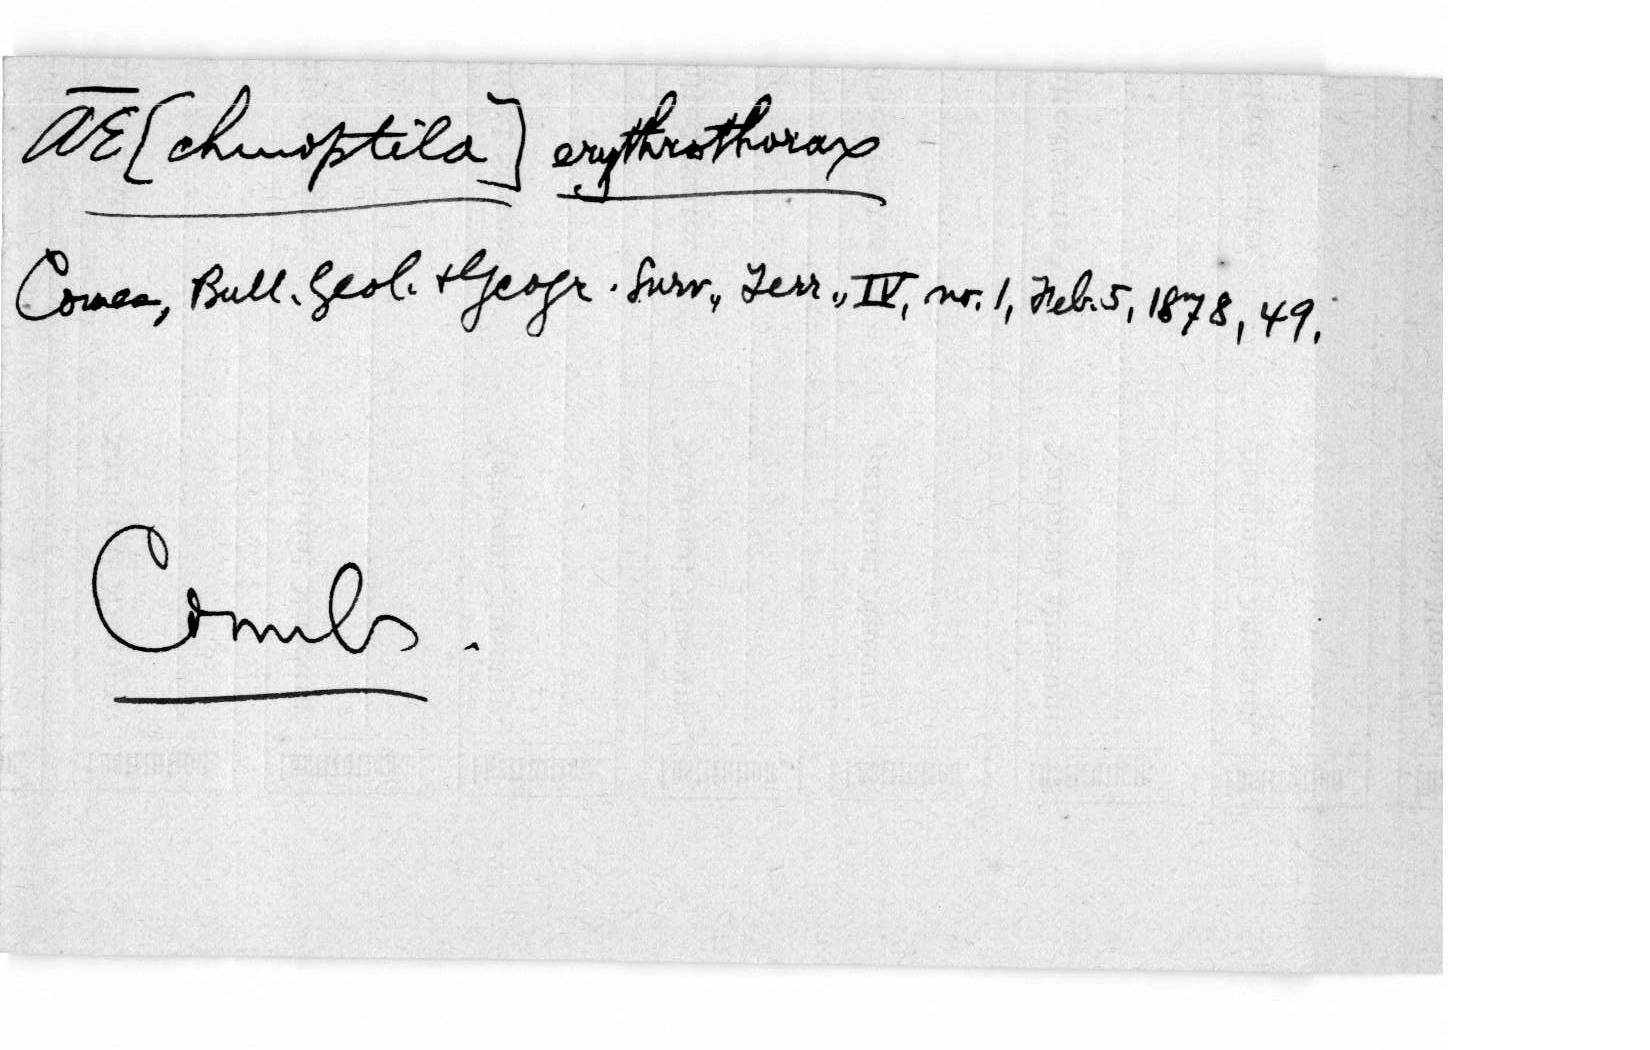 AE[chmoptila] erythrothorax
Coues, Bull. Geol. + Geogr. Surv., Terr., IV, no. 1, Feb. 5, 1878, 49.
Comb.